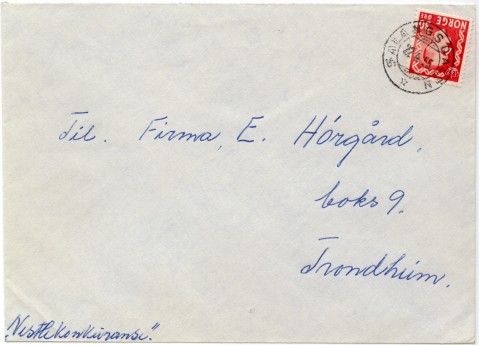 NORGE
Til. Firma, E. Hörgård,
boks 9.
Trondheim.
„Nestlékonkuranse".